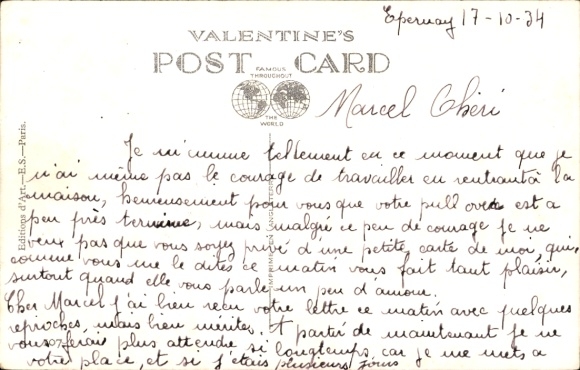 Epernay 17-10-34
VALENTINE'S
POST CARD
FAMOUS
THROUGHOUT
THE
WORLD
Marcel Chéri
Je m'ennuie tellement en ce moment que je
n'ai même pas le courage de travailler en rentrant à la
maison, heureusement pour vous que votre pull over est a
peu près terminé, mais malgré ce peu de courage je ne
veux pas que vous soyez privé d'une petite carte de moi, qui,
comme vous me le dites ce matin vous fait tant plaisir,
surtout quand elle vous parle un peu d'amour.
Cher Marcel j'ai bien reçu votre lettre ce matin avec quelques
reproches, mais bien mérités. A partir de maintenant je ne
vous ferai plus attendre si longtemps, car je me mets a
votre place, et si j'étais plusieurs jours
Editions d'Art.—E.S.—Paris.
IMPRIMÉ EN ANGLETERRE